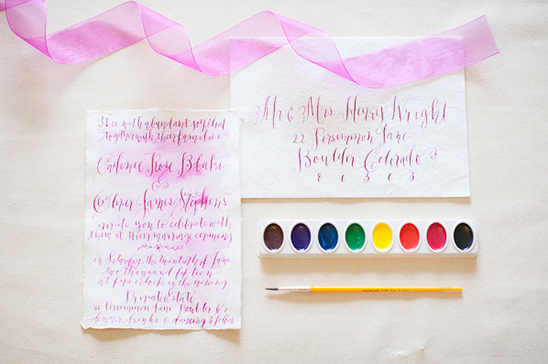 It is with abundant joy that
together with their families
Cadence Rose Blake
&
Oliver James Stephens
invite you to celebrate with
them at their marriage ceremony
on Saturday, the twentieth of June
two thousand fifteen
at five o'clock in the evening
Private Estate
22 Persimmon Lane Boulder Co
dinner, drinks & dancing to follow
Mr & Mrs Henry Wright
22 Persimmon Lane
Boulder Colorado